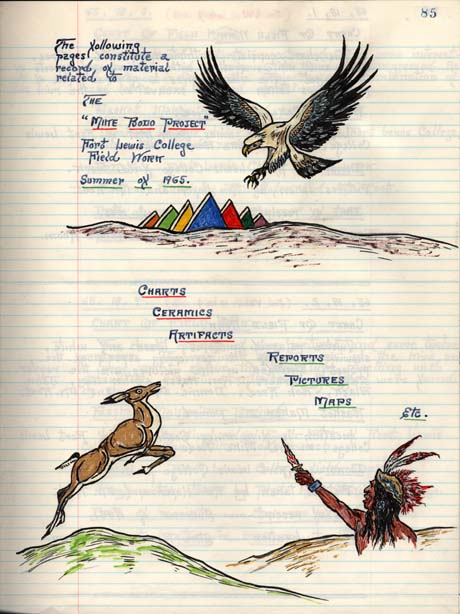 85
The following
pages constitute a
record of material
related to
The
"Mike Bodo Project"
Fort Lewis College
Field Work
Summer of 1965.
Charts
Ceramics
Artifacts
Reports
Pictures
Maps
Etc.